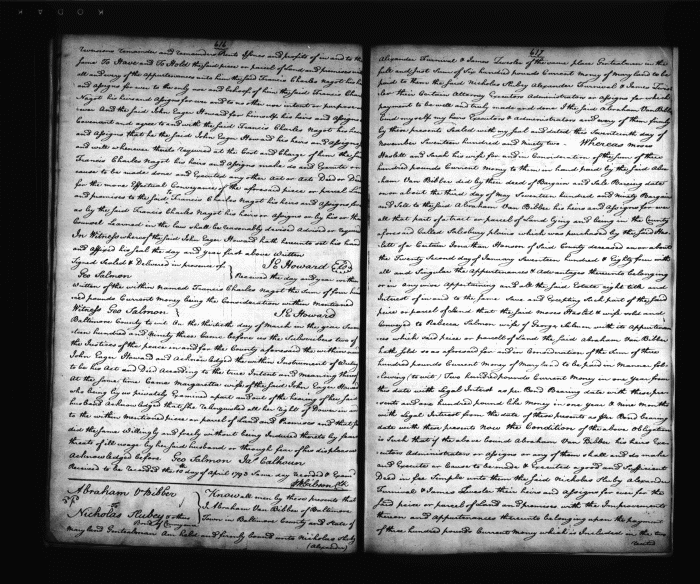 616
Versions Remainder and Remainders Rents Issues and profits of in and to the
same To Have and To Hold the said piece or parcel of Land and premises with
all and every of the appurtenances unto him the said Francis Charles Nagot his heirs
and assigns for ever to the only use and behoof of him the said Francis Charles
Nagot his heirs and Assigns for ever and to no other use intent or purpose what
ever And the said John Eager Howard for himself his heirs and Assigns doth
Covenant and agree to and with the said Francis Charles Nagot his heirs
and Assigns that he the said John Eager Howard his heirs and assigns shall
and will whenever thereto required at the Cost and Charge of him the said
Francis Charles Nagot his heirs and assigns make do and Execute or
cause to be made done and Executed any other Act or Acts Deed or Deeds
for the more Effectual Conveyance of the aforesaid piece or parcel Land
and premises to the said Francis Charles Nagot his heirs and Assigns forever
as by the said Francis Charles Nagot his heirs or assigns or by his or their
Counsel Learned in the law shall be reasonably devised advised or required
In Witness whereof the said John Eager Howard hath hereunto set his hand
and affixed his seal the day and year first above Written
Signed Sealed & Delivered in presence of J E Howard
Geo Salmon Received the day and year within
Written of the within Named Francis Charles Nagot the sum of four hun
dred pounds Current Money being the Consideration within Mentioned
Witness Geo Salmon J E Howard
Baltimore County to wit On the thirtieth day of March in the year Seven
teen hundred and Ninety three Came before us the Subscribers two of
the Justices of the peace in and for the County aforesaid the within named
John Eager Howard and Acknowledged the within Instrument of Writing
to be his Act and Deed According to the true Intent and meaning thereof
At the same time Came Margaretta wife of the said John Eager Howard
who being by us privately Examined apart and out of the hearing of her said
husband Acknowledged that she relinquished all her Right of Dower in and
to the within mentioned piece or parcel of Land and Premises and that she
did the same Willingly and freely without being Induced thereto by fear or
threats of ill usage by her said husband or through fear of his displeasure
Acknowledged before Geo Salmon Jas Calhoun
Received to be Recorded the 10 day of April 1793 Same day Recorded & Exam'd
Wm Gibson Clk
Abraham V Bibber
to
Nicholas Rubey & others
Know all men by these presents that
I Abraham Van Bibber of Baltimore
Town in Baltimore County and State of
Maryland Gentleman Am held and firmly bound unto Nicholas Ruby
(Alexander)
617
Alexander Furnival & James Zwesler of the same place Gentlemen in the
full and just Sum of Six hundred pounds Current Money of Maryland to be
paid to them the said Nicholas Ruby Alexander Furnival & James Zwes
ler their Certain Attorney Executors Administrators or Assigns for which
payment to be well and truly made and done I the said Abraham Van Bibber
bind myself my heirs Executors & Administrators and every of them firmly
by these presents Sealed with my Seal and dated this Seventeenth day of
November Seventeen hundred and Ninety two. Whereas Moses
Haslett and Sarah his wife for and in Consideration of the Sum of three
hundred pounds Current Money to them in hand paid by the said Abra
ham Van Bibber did by their deed of Bargain and Sale Bearing date
on or about the third day of May Seventeen hundred and Ninety Bargain
and Sale to the said Abraham Van Bibber his heirs and Assigns for ever
all that part of a tract or parcel of Land lying and being in the County
aforesaid Called Salisbury plains which was purchased by the said Has
lett of a Certain Jonathan Hanson of Said County deceased on or about
the Twenty Second day of January Seventeen hundred & Eighty five with
all and Singular the Appurtenances & Advantages thereunto belonging
or in any wise Appertaining and all the said Estate right title and
Interest of in and to the same Save and Excepting Such part of the said
piece or parcel of Land that the said Moses Haslet & wife sold and
Conveyed to Rebecca Salmon wife of George Salmon with its Appurtenan
ces which said piece or parcel of Land the said Abraham Van Bibber
hath sold as aforesaid for and in Consideration of the Sum of three
hundred pounds Current Money of Maryland to be paid in Manner fol
lowing (to wit) Two hundred pounds Current Money in one year from
this date with Legal Interest as per Bond Bearing date with these pre
sents and one hundred pound like Money in one year & Nine Months
with Legal Interest from the date of these presents as per Bond bearing
date with these presents Now the Condition of the above Obligation
is Such that if the above bound Abraham Van Bibber his heirs Exe
cutors Administrators or Assigns or any of them shall and do make
and Execute or Cause to be made & Executed a good and Sufficient
Deed in fee Simple unto them the said Nicholas Ruby Alexander
Furnival & James Zwesler their heirs and Assigns for ever for the
said piece or parcel of Land and premises with the Improvements
thereon and Appurtenances thereunto belonging upon the payment
of three hundred pounds Current Money which is Included in the two
recited